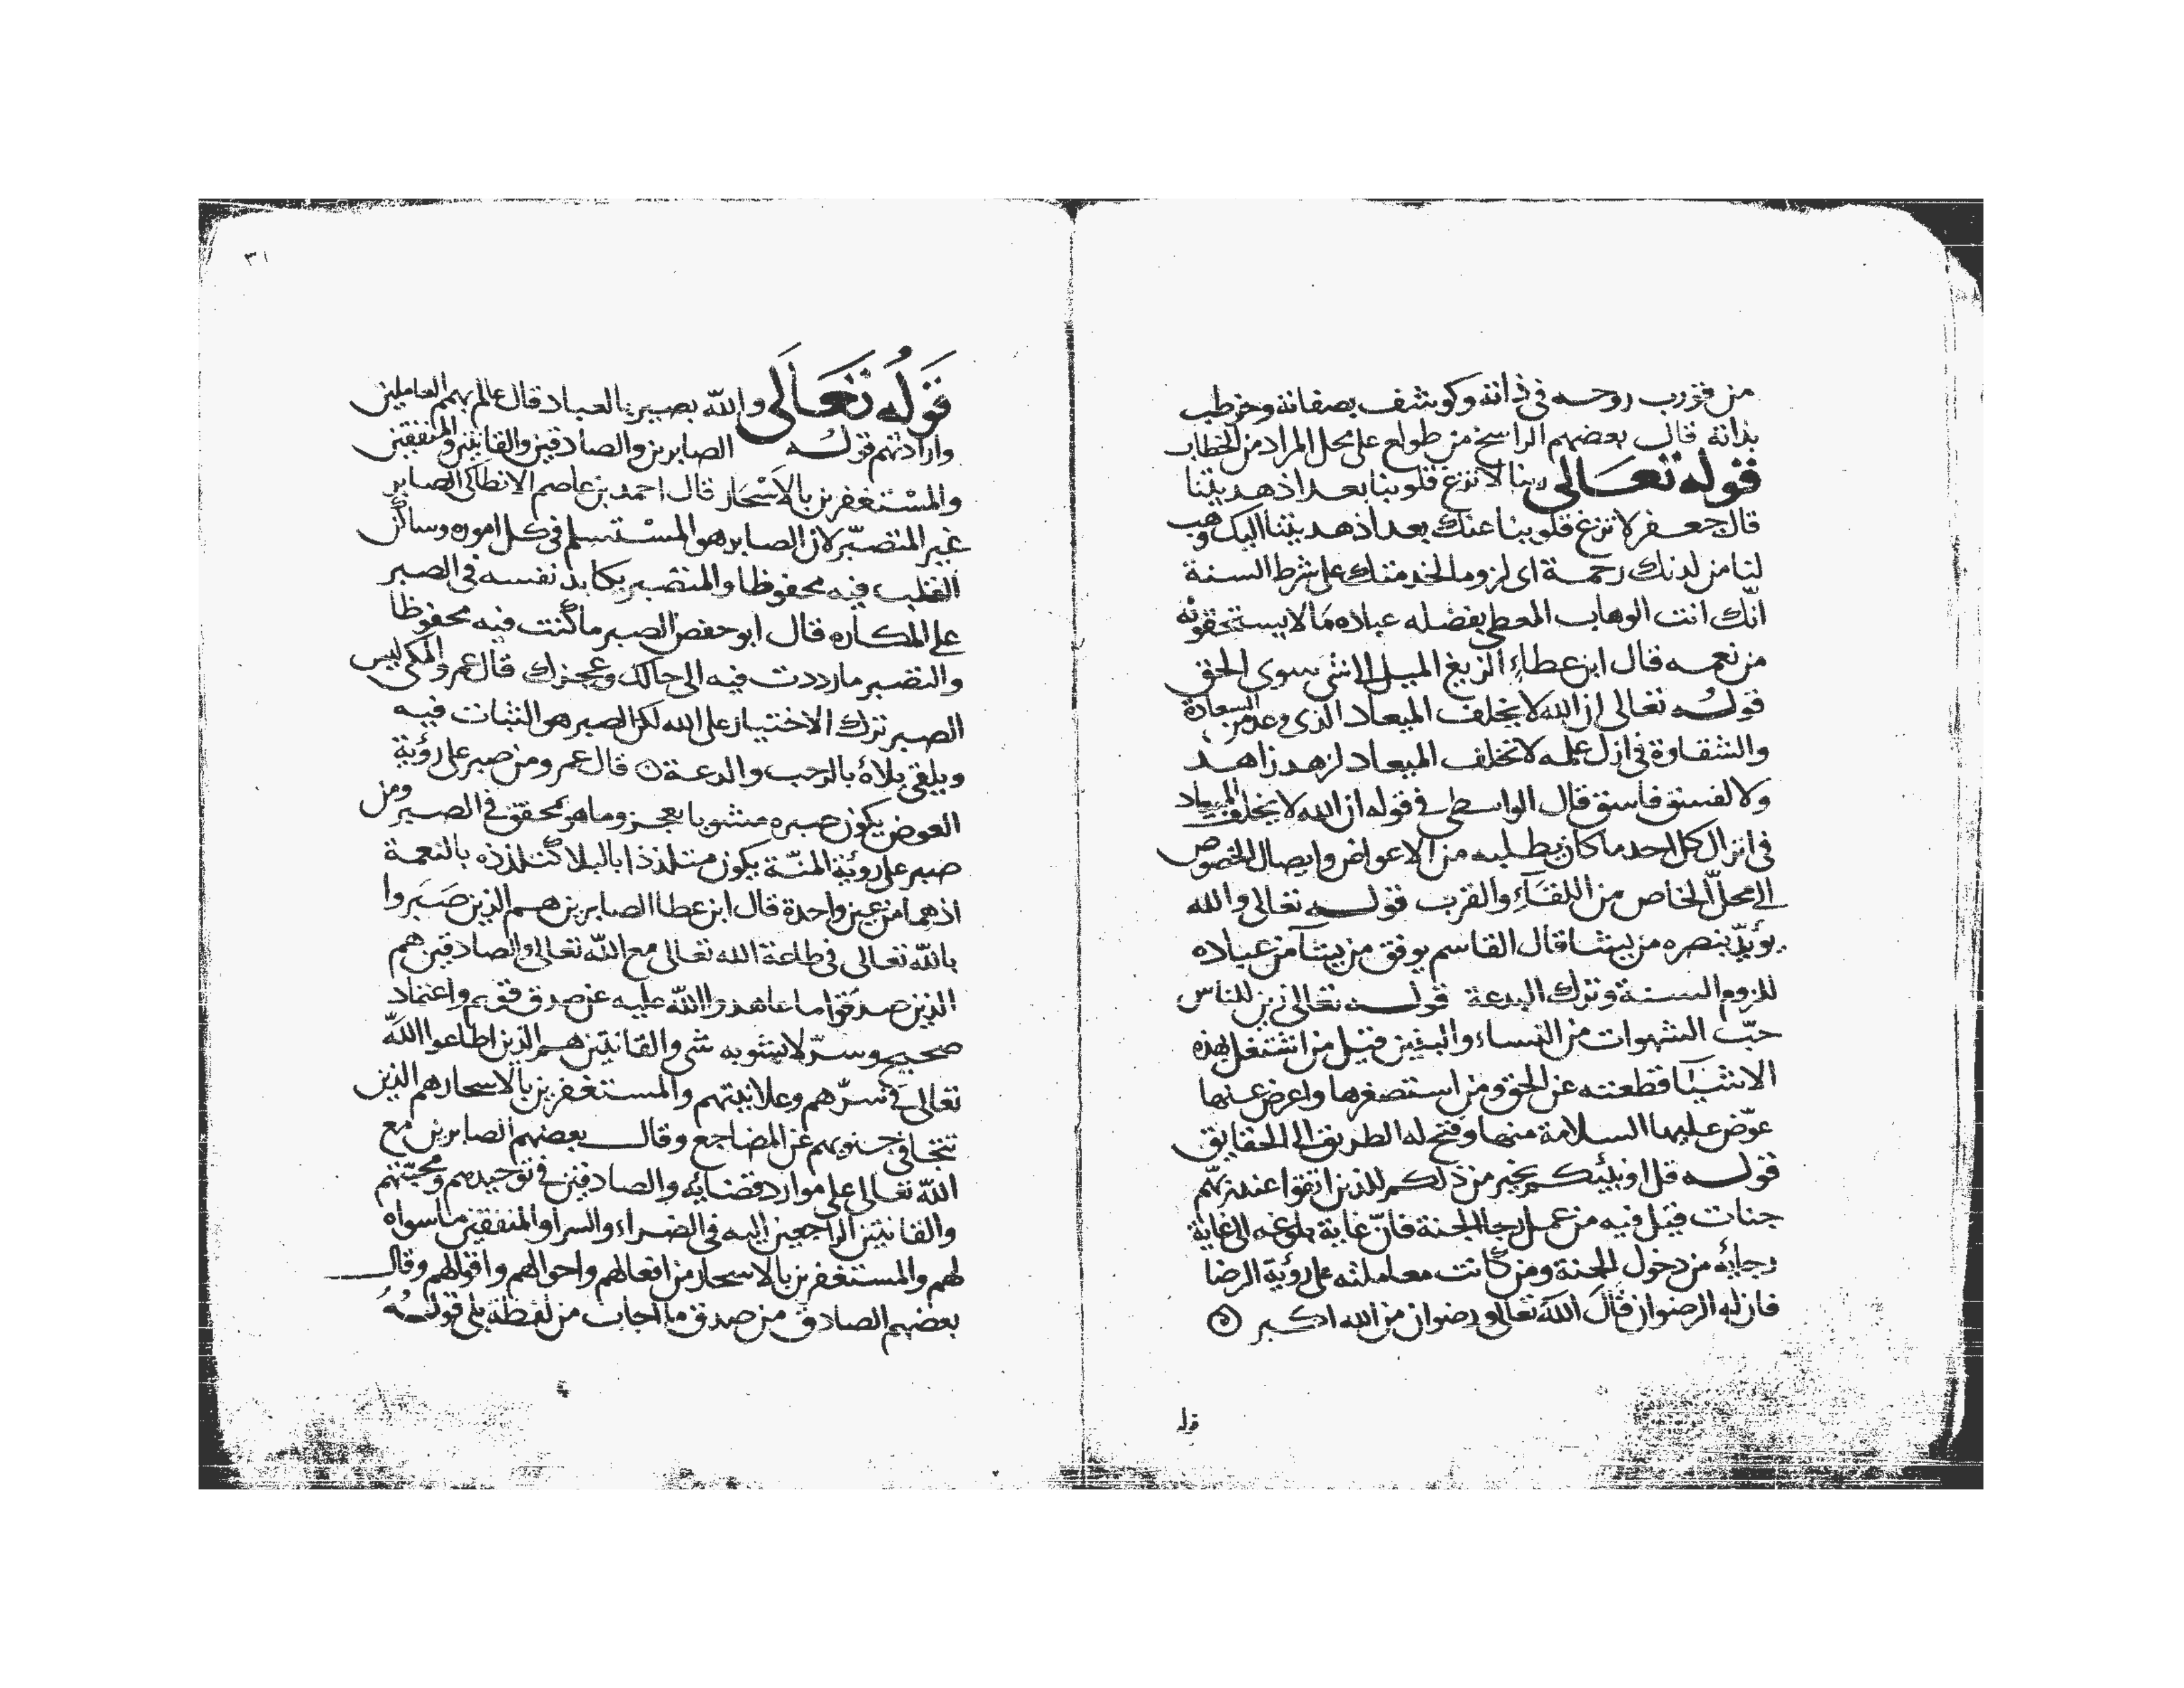 من قورب روحه فى ذاته وكوشف بصفاته وخوطب
بذاته قال بعضهم الراسخ من طولع على محل المراد من الخطاب
قوله تعالى ربنا لا تزغ قلوبنا بعد اذ هديتنا
قال جعفر لا تزغ قلوبنا عنك بعد اذ هديتنا اليك وهب
لنا من لدنك رحمة اى لزوما لخدمتك على شرط السنة
انّك انت الوهاب المعطى بفضله عباده مما لا يستحقونه
من نعمه قال ابن عطاء الزيغ الميل الى شى سوى الحق
قوله تعالى ان الله لا يخلف الميعاد الذى وعد من السعادة
والشقاوة فى ازل علمه لا تخلف الميعاد لزهد زاهد
ولا لفسق فاسق قال الواسطى فى قوله ان الله لا يخلف الميعاد
فى انزال كل احد ما كان يطلبه من الاعواض وايصال الخصوص
الى محلّ الخاص من اللقاء والقرب قوله تعالى والله
يؤيّد بنصره من يشا قال القاسم يوفق من يشآ من عباده
للزوم السنة وترك البدعة قوله تعالى زين للناس
حبّ الشهوات من النساء والبنين قيل من اشتغل بهذه
الاشيا قطعته عن الحق ومن استصغرها واعرض عنها
عوّض عليها السلامة منها وفتح له الطريق الى الحقايق
قوله قل اونبئكم بخير من ذلكم للذين اتقوا عند ربهم
جنات قيل فيه من عمل رجا الجنة فانّ غاية بلوغه الى غاية
رجائه من دخول الجنة ومن كانت معاملته على رؤية الرضا
فان له الرضوان قال الله تعالى ورضوان من الله اكبر
قوله
٣١
قوله تعالى والله بصير بالعباد قال عالم بهمم العاملين
وارادتهم قوله الصابرين والصادقين والقانتين والمنفقين
والمستغفرين بالاسحار قال احمد بن عاصم الانطاكى الصابر
غير المتصبّر لان الصابر هو المستسلم فى كل اموره وساكن
القلب فيه محفوظا والمتصبر يكابد نفسه فى الصبر
على المكاره قال ابو حفص الصبر ما كنت فيه محفوظا
والتصبر ما رددت فيه الى حالك وعجزك قال عمرو المكى ليس
الصبر ترك الاختيار على الله لكن الصبر هو الثبات فيه
ويلقى بلاءه بالرحب والدعة قال عمر ومن صبر على رؤية
العوض يكون صبره مشوبا بعجز وما هو بمحقق فى الصبر ومن
صبر على رؤية المنّة يكون متلذذا بالبلا كتلذذه بالنعمة
اذ هما من عين واحدة قال ابن عطا الصابرين هم الذين صَبَروا
بالله تعالى فى طاعة الله تعالى مع الله تعالى والصادقين هم
الذين صدقوا ما عاهدوا الله عليه عن صدق واعتماد
صحيح وسرّ لا يشوبه شى والقانتين هم الذين اطاعوا الله
تعالى فى سرّهم وعلانيتهم والمستغفرين بالاسحار هم الذين
تتجافى جنوبهم عن المضاجع وقال بعضهم الصابرين مع
الله تعالى على موارد قضائه والصادقين فى توحيدهم ومحبّتهم
والقانتين الراجعين اليه فى الضراء والسرا والمنفقين ما سواه
لهم والمستغفرين بالاسحار من افعالهم واحوالهم واقوالهم وقال
بعضهم الصادق من صدق ما اجاب من لفظة بلى قوله